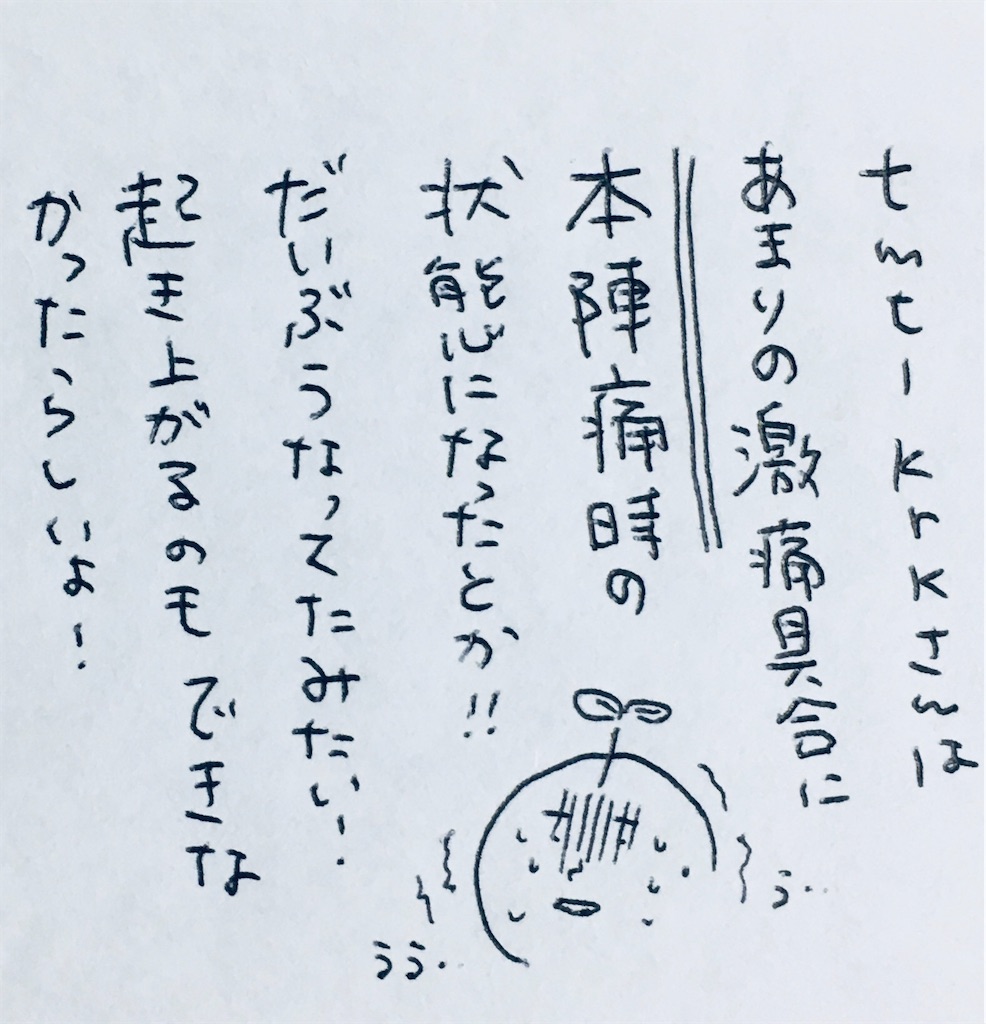 tmt-krkさんは
あまりの激痛具合に
本陣痛時の
状態になったとか!!
だいぶうなってたみたい!
起き上がるのもできな
かったらしいよ!
う…
うう…